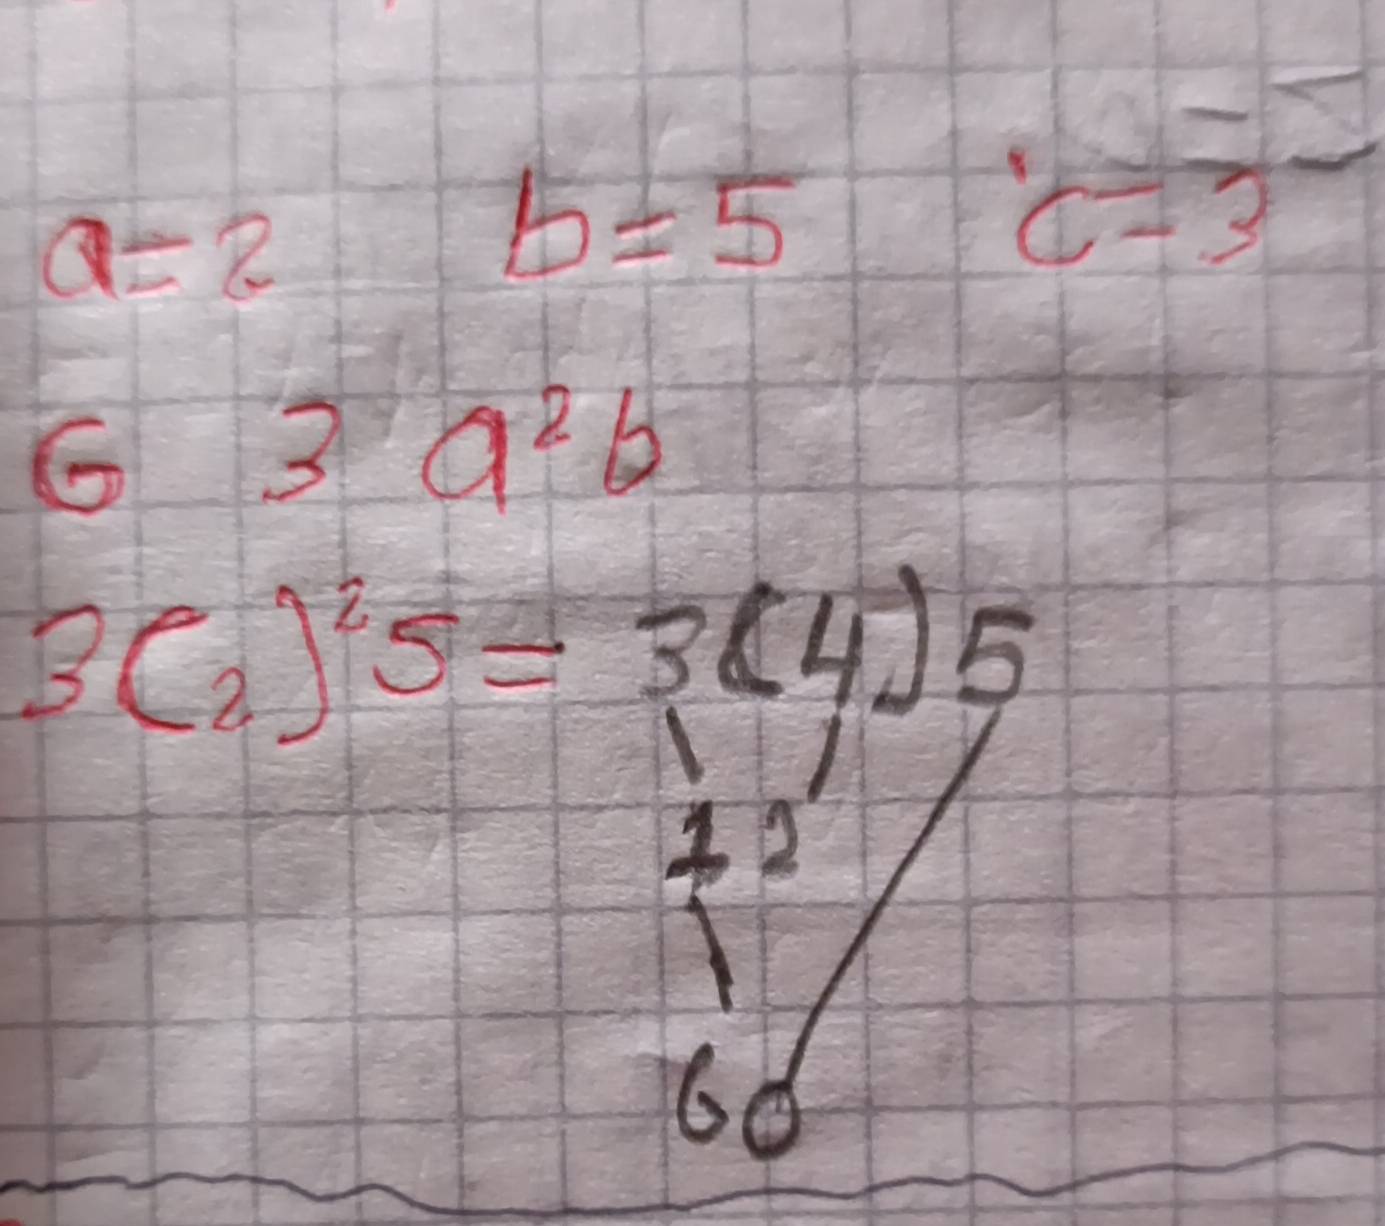 a=2 b=5 c=3
6 3 a²b
3(2)²5= 3(4)5
12
60